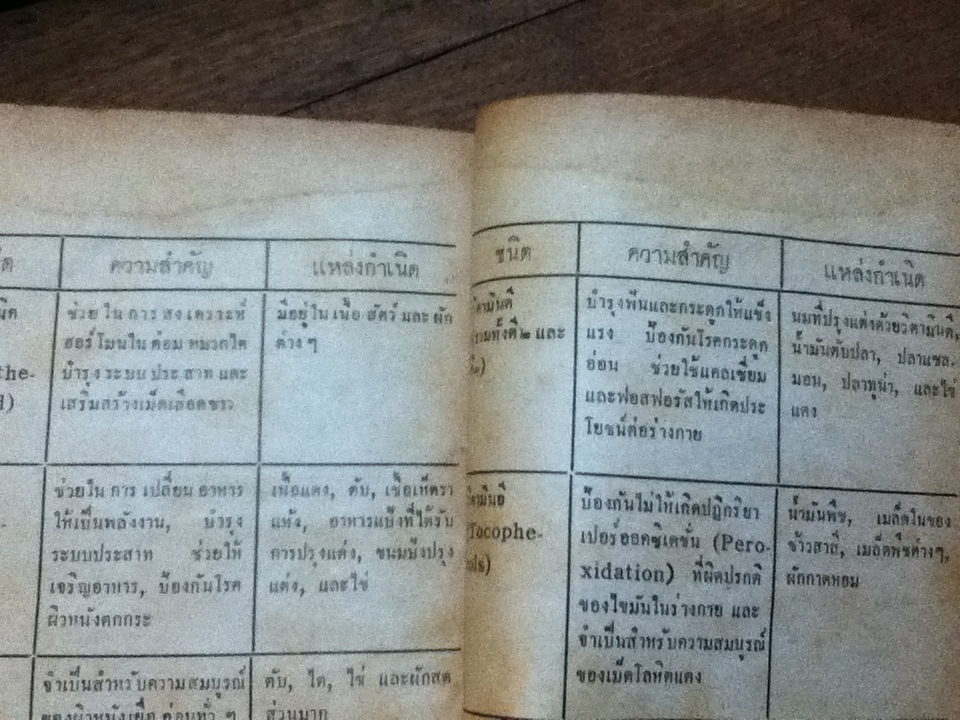 ความสำคัญ
แหล่งกำเนิด
the-
ช่วยในการสังเคราะห์
ฮอร์โมนในต่อมหมวกไต
บำรุงระบบประสาทและ
เสริมสร้างเม็ดเลือดขาว
มีอยู่ในเนื้อสัตว์และผัก
ต่างๆ
ช่วยในการเปลี่ยนอาหาร
ให้เป็นพลังงาน, บำรุง
ระบบประสาท ช่วยให้
เจริญอาหาร, ป้องกันโรค
ผิวหนังตกกระ
เนื้อแดง, ตับ, เชื้อเห็ดรา
แห้ง, อาหารแป้งที่ได้รับ
การปรุงแต่ง, ขนมปังปรุง
แต่ง, และไข่
จำเป็นสำหรับความสมบูรณ์
ตับ, ไต, ไข่ และผักสด
ส่วนมาก
ชนิด
ความสำคัญ
แหล่งกำเนิด
วิตามินดี
รวมทั้งดี๒ และ
บำรุงฟันและกระดูกให้แข็ง
แรง ป้องกันโรคกระดูก
อ่อน ช่วยใช้แคลเซี่ยม
และฟอสฟอรัสให้เกิดประ
โยชน์ต่อร่างกาย
นมที่ปรุงแต่งด้วยวิตามินดี,
น้ำมันตับปลา, ปลาแซล-
มอน, ปลาทูน่า, และไข่
แดง
วิตามินอี
Tocophe-
ป้องกันไม่ให้เกิดปฏิกริยา
เปอร์ออคซิเดชั่น (Pero-
xidation) ที่ผิดปรกติ
ของไขมันในร่างกาย และ
จำเป็นสำหรับความสมบูรณ์
ของเม็ดโลหิตแดง
น้ำมันพืช, เมล็ดในของ
ข้าวสาลี, เมล็ดพืชต่างๆ,
ผักกาดหอม